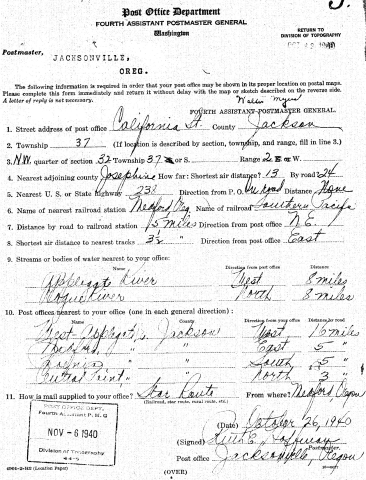 Post Office Department
FOURTH ASSISTANT POSTMASTER GENERAL
Washington
RETURN TO
DIVISION OF TOPOGRAPHY
Postmaster,
JACKSONVILLE,
OREG.
The following information is required in order that your post office may be shown in its proper location on postal maps.
Please complete this form immediately and return it without delay with the map or sketch described on the reverse side.
A letter of reply is not necessary.
Walter Myers
FOURTH ASSISTANT POSTMASTER GENERAL.
1. Street address of post office California St. County Jackson
2. Township 37 (If location is described by section, township, and range, fill in line 3.)
3. N.W. quarter of section 32 Township 37 S. Range 2 W
4. Nearest adjoining county Josephine How far: Shortest air distance? 13 By road 24
5. Nearest U. S. or State highway 238 Direction from P. O. On road Distance None
6. Name of nearest railroad station Medford Oreg Name of railroad Southern Pacific
7. Distance by road to railroad station 5 miles Direction from post office N.E.
8. Shortest air distance to nearest tracks 3½ " Direction from post office East
9. Streams or bodies of water nearest to office:
Name Direction from post office Distance
Applegate River West 8 miles
Rogue River North 8 miles
10. Post offices nearest to your office (one in each general direction):
Name County Direction from post office Distance by road
West- Applegate, Jackson West 16 miles
Medford, " East 5 "
" South 5 "
Central Point " North 3 "
11. How is mail supplied to your office? Star Route From where? Medford Oregon
(Railroad, star route, rural route, etc.)
POST OFFICE DEPT.
Fourth Assistant P. M. G
NOV - 6 1940
Division of Topography
(Date) October 26, 1940
(Signed)
Postmaster.
Post office Jacksonville, Oregon
(OVER)